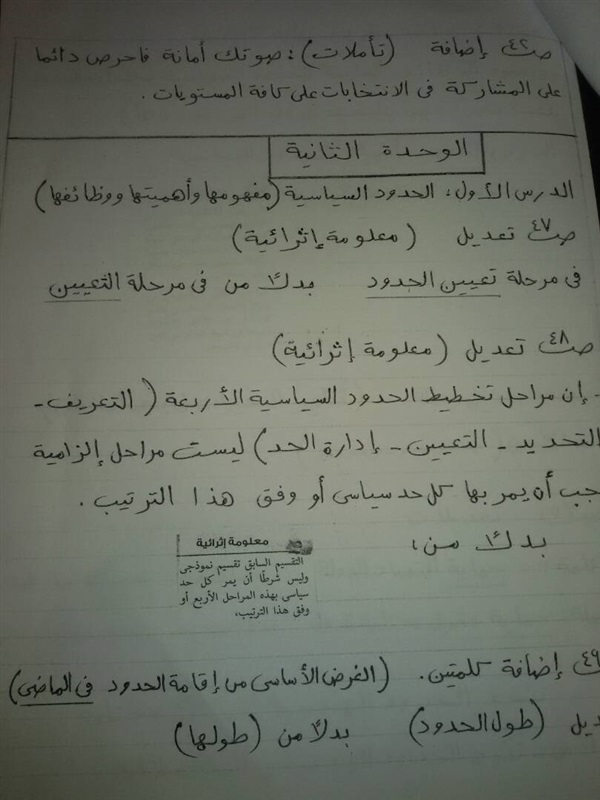 صـ٤٢ إضافة (تأملات): صوتك أمانة فاحرص دائما
على المشاركة فى الانتخابات على كافة المستويات.
الوحدة الثانية
الدرس الأول: الحدود السياسية (مفهومها وأهميتها ووظائفها)
صـ٤٧ تعديل (معلومة إثرائية)
فى مرحلة تعيين الحدود بدلاً من فى مرحلة التعيين
صـ٤٨ تعديل (معلومة إثرائية)
- إن مراحل تخطيط الحدود السياسية الأربعة (التعريف -
التحديد - التعيين - إدارة الحد) ليست مراحل إلزامية
جب أن يمر بها كل حد سياسى أو وفق هذا الترتيب.
بدلاً من:
معلومة إثرائية
التقسيم السابق تقسيم نموذجى
وليس شرطًا أن يمر كل حد
سياسى بهذه المراحل الأربع أو
وفق هذا الترتيب.
٤٩ إضافة كلمتين. (الغرض الأساسى من إقامة الحدود فى الماضى)
ديل (طول الحدود) بدلاً من (طولها)